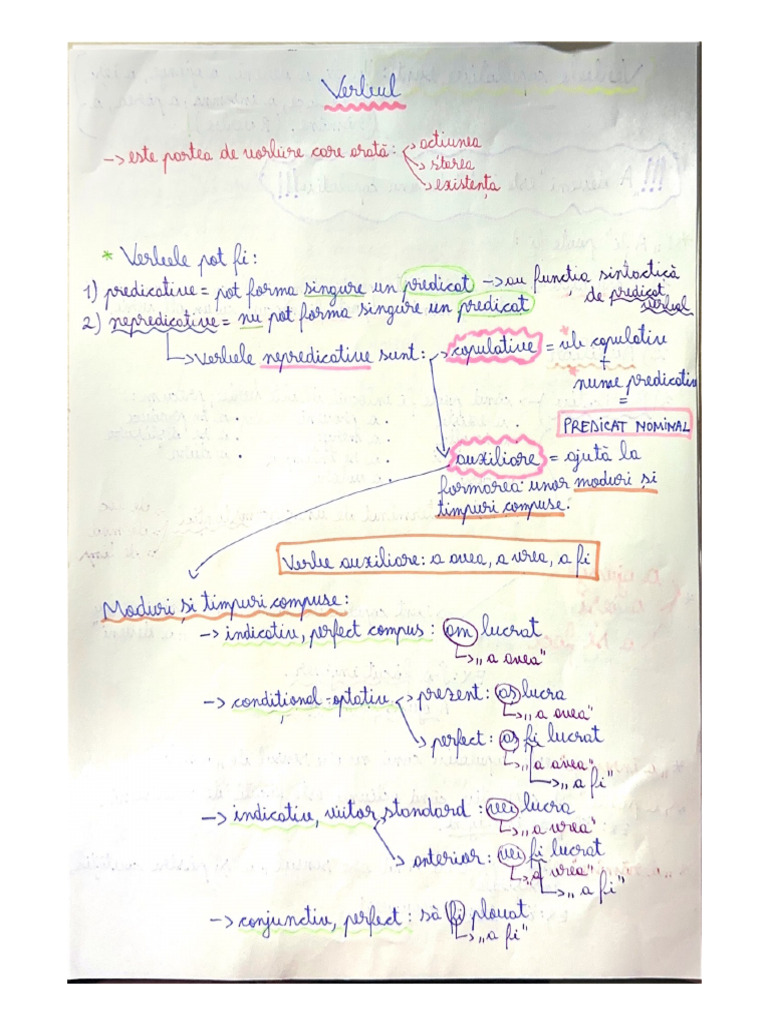 Verbul
-> este partea de vorbire care arată: -> acțiunea
-> starea
-> existența
* Verbele pot fi:
1) predicative = pot forma singure un predicat -> au funcția sintactică
de predicat
verbal
2) nepredicative = nu pot forma singure un predicat
-> verbele nepredicative sunt: -> copulative = *vb copulativ
+
*nume predicativ
=
PREDICAT NOMINAL
auxiliare = ajută la
formarea unor moduri și
timpuri compuse.
Verbe auxiliare: a avea, a vrea, a fi
Moduri și timpuri compuse:
-> indicativ, perfect compus: am lucrat
-> „a avea"
-> condițional-optativ -> prezent: aș lucra
-> „a avea"
-> perfect: aș fi lucrat
-> „a avea"
-> „a fi"
-> indicativ, viitor, standard: vei lucra
-> „a vrea"
-> anterior: vei fi lucrat
-> „a vrea"
-> „a fi"
-> conjunctiv, perfect: să fi plouat
-> „a fi"